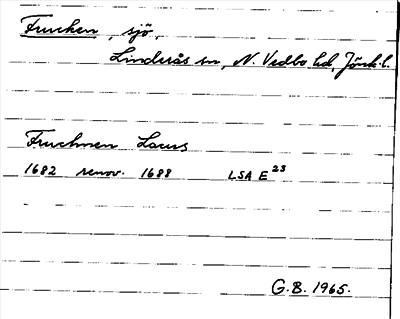 Frucken, sjö.
Linderås sn, N. Vedbo hd, Jönk. l.
Fruchnen Lacus
1682 renov. 1688 LSA E 23
G.B. 1965.